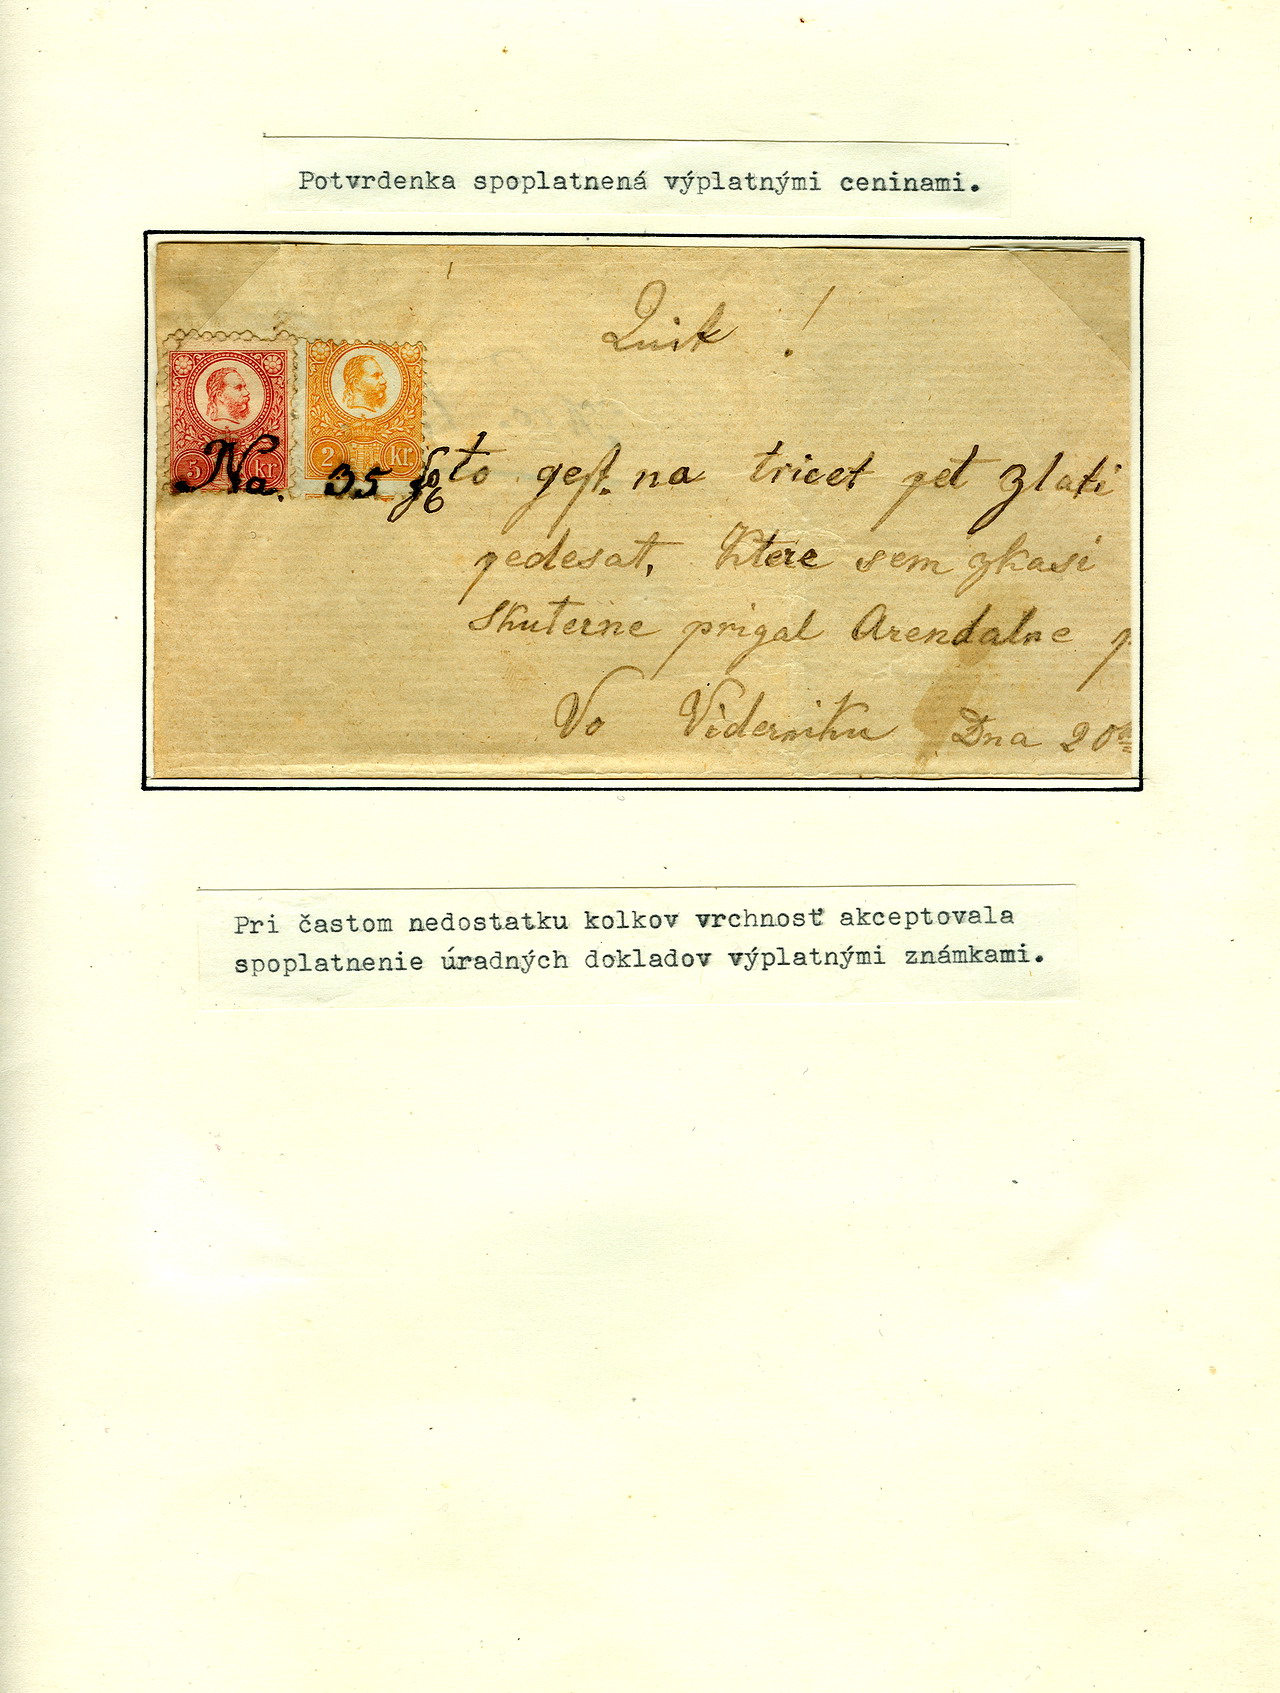 Potvrdenka spoplatnená výplatnými ceninami.
Quit !
5 kr 2 kr
Na. 35 to gest. na tricet pet zlati
pedesat, Ktere sem zkasi
Skuterne prigal Arendalne
Vo Viderniku Dna 20
Pri častom nedostatku kolkov vrchnosť akceptovala
spoplatnenie úradných dokladov výplatnými známkami.